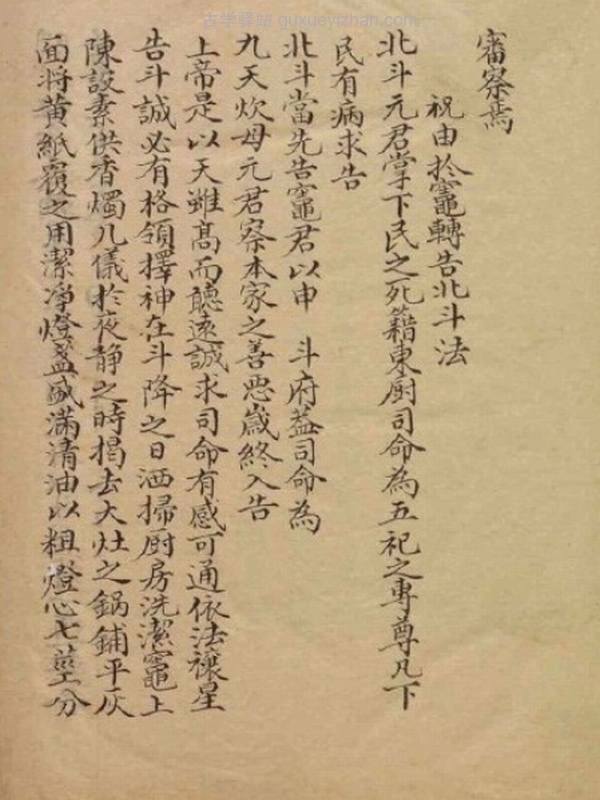 古学驿站 guxueyizhan.com
審察焉
祝由於竈轉告北斗法
北斗元君掌下民之死籍東厨司命為五祀之專尊凡下
民有病求告
北斗當先告竈君以申 斗府葢司命為
九天炊母元君察本家之善恶歲終入告
上帝是以天雖髙而聽遠誠求司命有感可通依法禳星
告斗誠必有格領擇神在斗降之日洒掃厨房洗潔竈上
陳設素供香燭几儀於夜静之時揭去大灶之鍋鋪平灰
面将黄紙覆之用潔凈燈盞盛滿清油以粗燈心七莖分